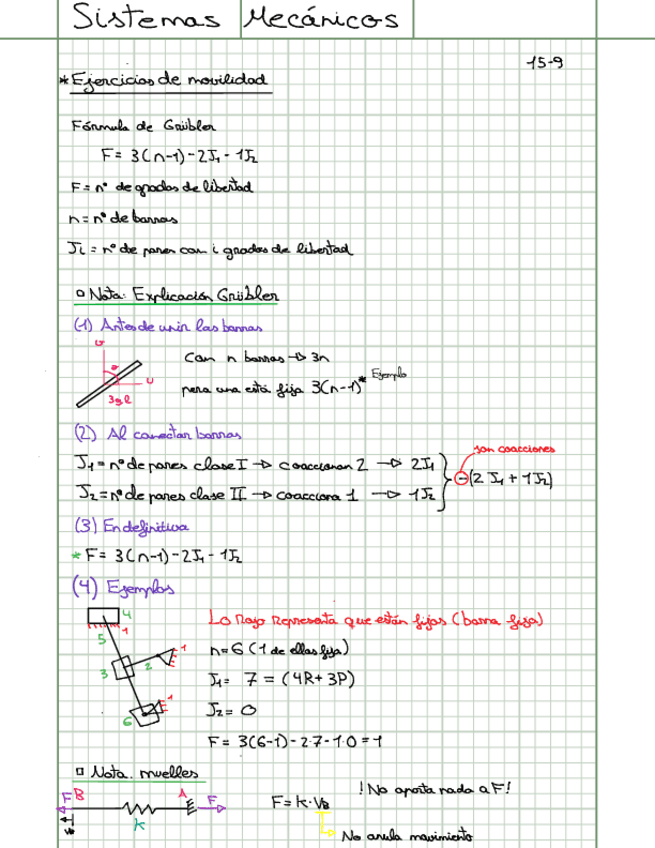 Sistemas Mecánicos
15-9
* Ejercicios de movilidad
Fórmula de Grübler
F = 3(n-1) - 2J₁ - 1J₂
F = nº de grados de libertad
n = nº de barras
Ji = nº de pares con i grados de libertad
Nota: Explicación Grübler
(1) Antes de unir las barras
v
θ
u
3gdl
Con n barras → 3n
pero una está fija 3(n-1)* Ejemplo
(2) Al conectar barras
son coacciones
J₁ = nº de pares clase I → coaccionan 2 → 2J₁
J₂ = nº de pares clase II → coacciona 1 → 1J₂
-(2J₁ + 1J₂)
(3) En definitiva
* F = 3(n-1) - 2J₁ - 1J₂
(4) Ejemplos
4
1
5
3
2
1
6
1
Lo Rojo Representa que están fijos (barra fija)
n=6 (1 de ellas fija)
J₁ = 7 = (4R+3P)
J₂ = 0
F = 3(6-1) - 2·7 - 1·0 = 1
Nota. muelles
F B A F
k
F = k·VB
!No aporta nada a F!
No anula movimiento